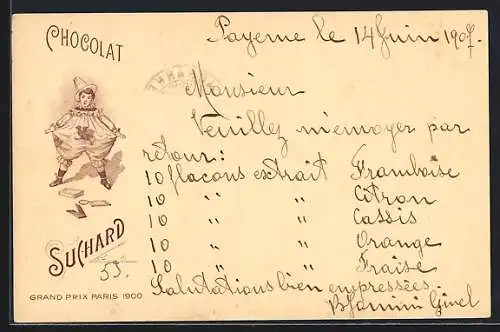 CHOCOLAT
SUCHARD
53.
GRAND PRIX PARIS 1900
Payerne le 14 Juin 1907.
Monsieur
Veuillez m'envoyer par
retour:
10 flacons extrait Framboise
10 " " Citron
10 " " Cassis
10 " " Orange
10 " " Fraise
Salutations bien empressées